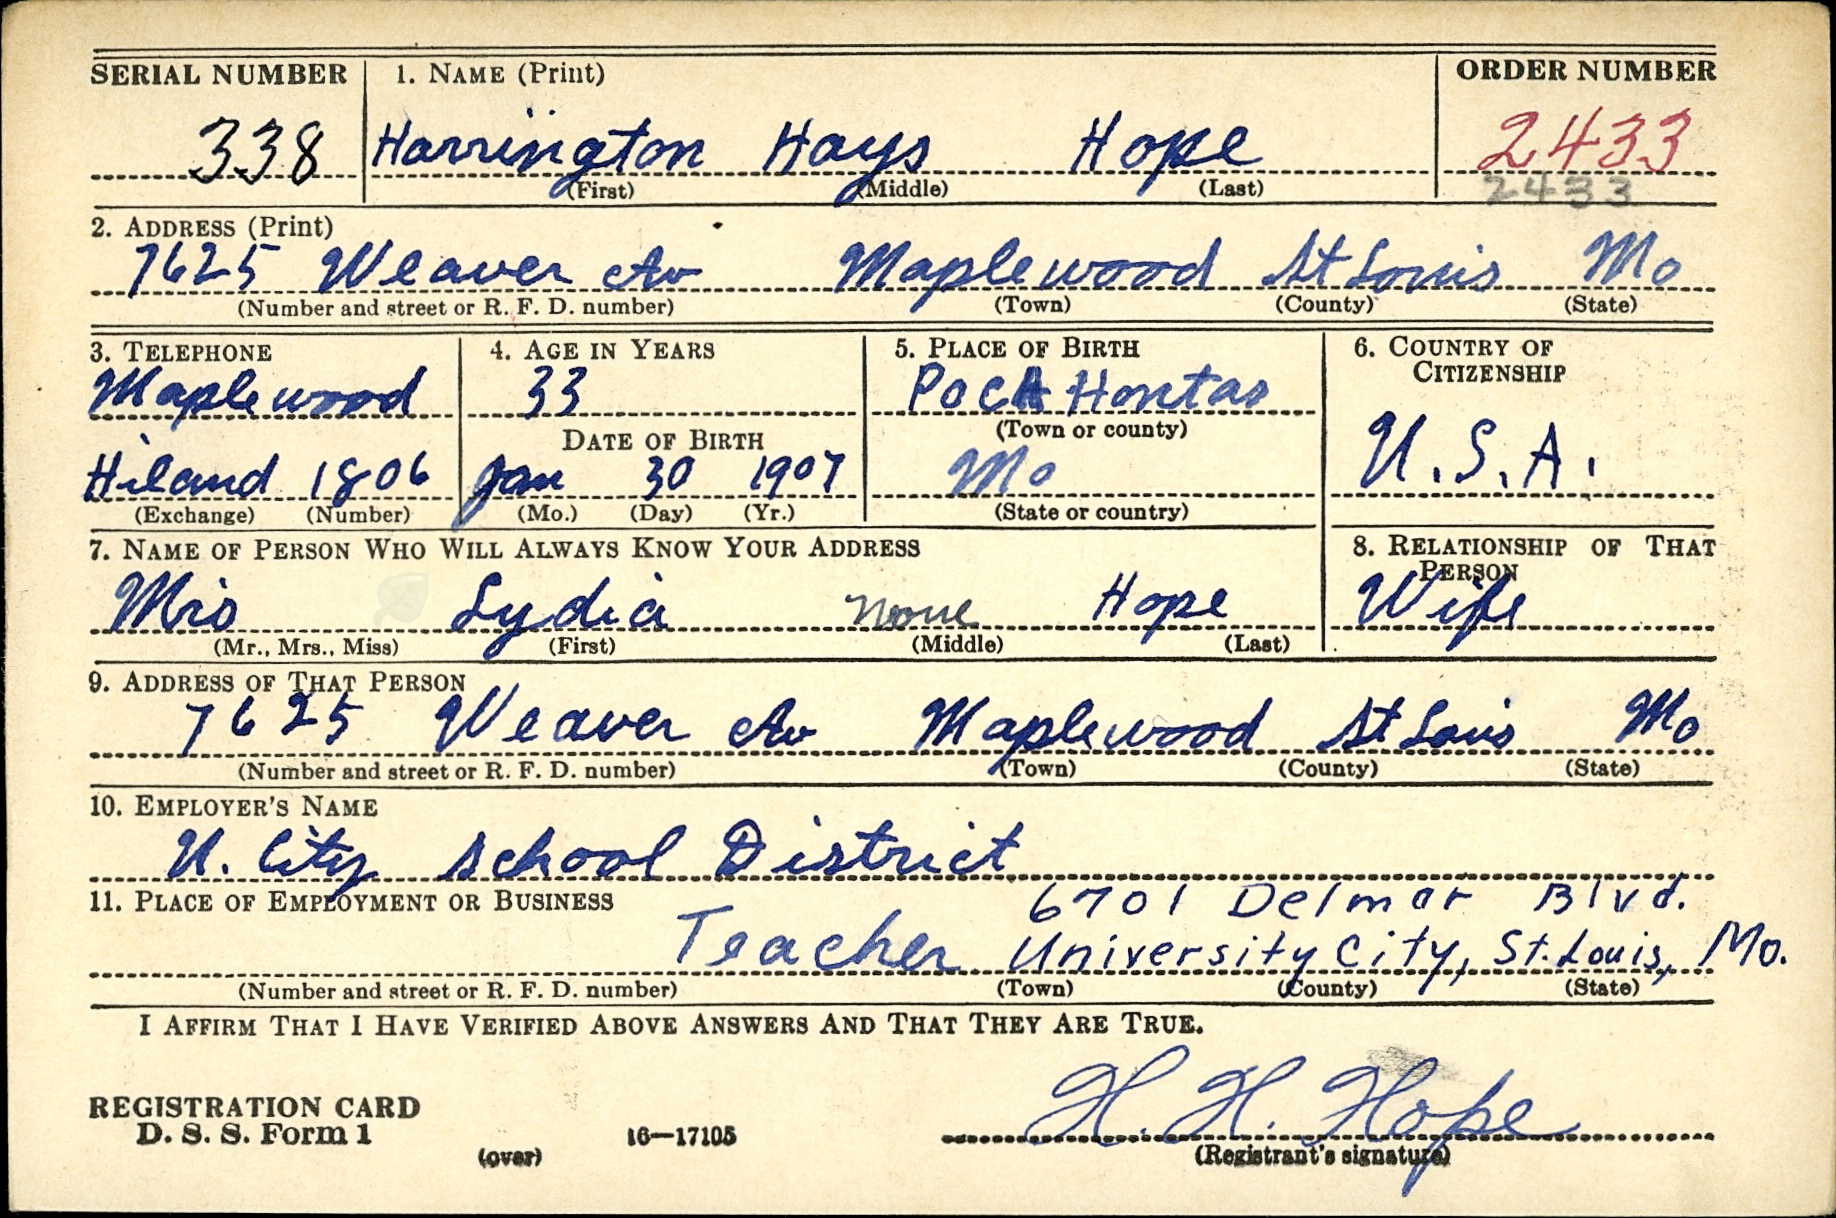 SERIAL NUMBER 1. NAME (Print) ORDER NUMBER
338 Harrington Hays Hope 2433
(First) (Middle) (Last) 2433
2. ADDRESS (Print)
7625 Weaver Av Maplewood St Louis Mo
(Number and street or R. F. D. number) (Town) (County) (State)
3. TELEPHONE 4. AGE IN YEARS 5. PLACE OF BIRTH 6. COUNTRY OF
CITIZENSHIP
Maplewood 33 Pocahontas
DATE OF BIRTH (Town or county)
Hiland 1806 Jan 30 1907 Mo U.S.A.
(Exchange) (Number) (Mo.) (Day) (Yr.) (State or country)
7. NAME OF PERSON WHO WILL ALWAYS KNOW YOUR ADDRESS 8. RELATIONSHIP OF THAT
PERSON
Mrs Lydia None Hope Wife
(Mr., Mrs., Miss) (First) (Middle) (Last)
9. ADDRESS OF THAT PERSON
7625 Weaver Av Maplewood St Louis Mo
(Number and street or R. F. D. number) (Town) (County) (State)
10. EMPLOYER'S NAME
U. City School District
11. PLACE OF EMPLOYMENT OR BUSINESS 6701 Delmar Blvd.
Teacher University City, St. Louis, Mo.
(Number and street or R. F. D. number) (Town) (County) (State)
I AFFIRM THAT I HAVE VERIFIED ABOVE ANSWERS AND THAT THEY ARE TRUE.
H. H. Hope
REGISTRATION CARD
D. S. S. Form 1 16—17105
(over) (Registrant's signature)